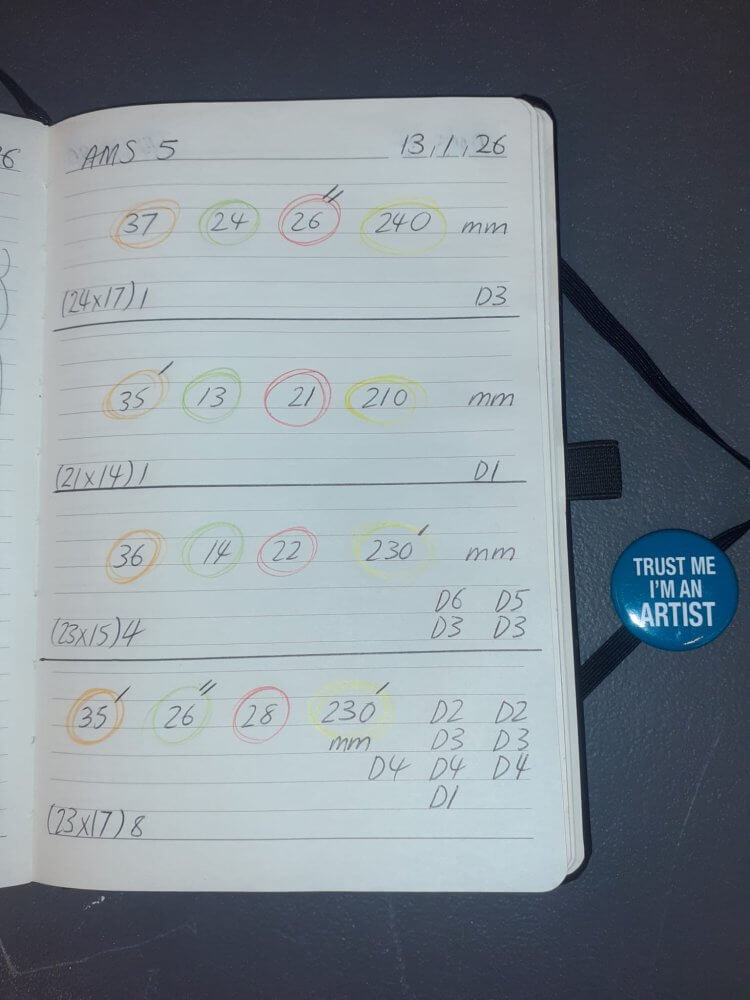 6
AMS 5 13,1,26
37 24 26" 240 mm
(24x17)1 D3
35' 13 21 210 mm
(21x14)1 D1
36 14 22 230' mm
D6 D5
(23x15)4 D3 D3
35' 26" 28 230' D2 D2
mm D3 D3
D4 D4 D4
D1
(23x17)8
TRUST ME
I'M AN
ARTIST